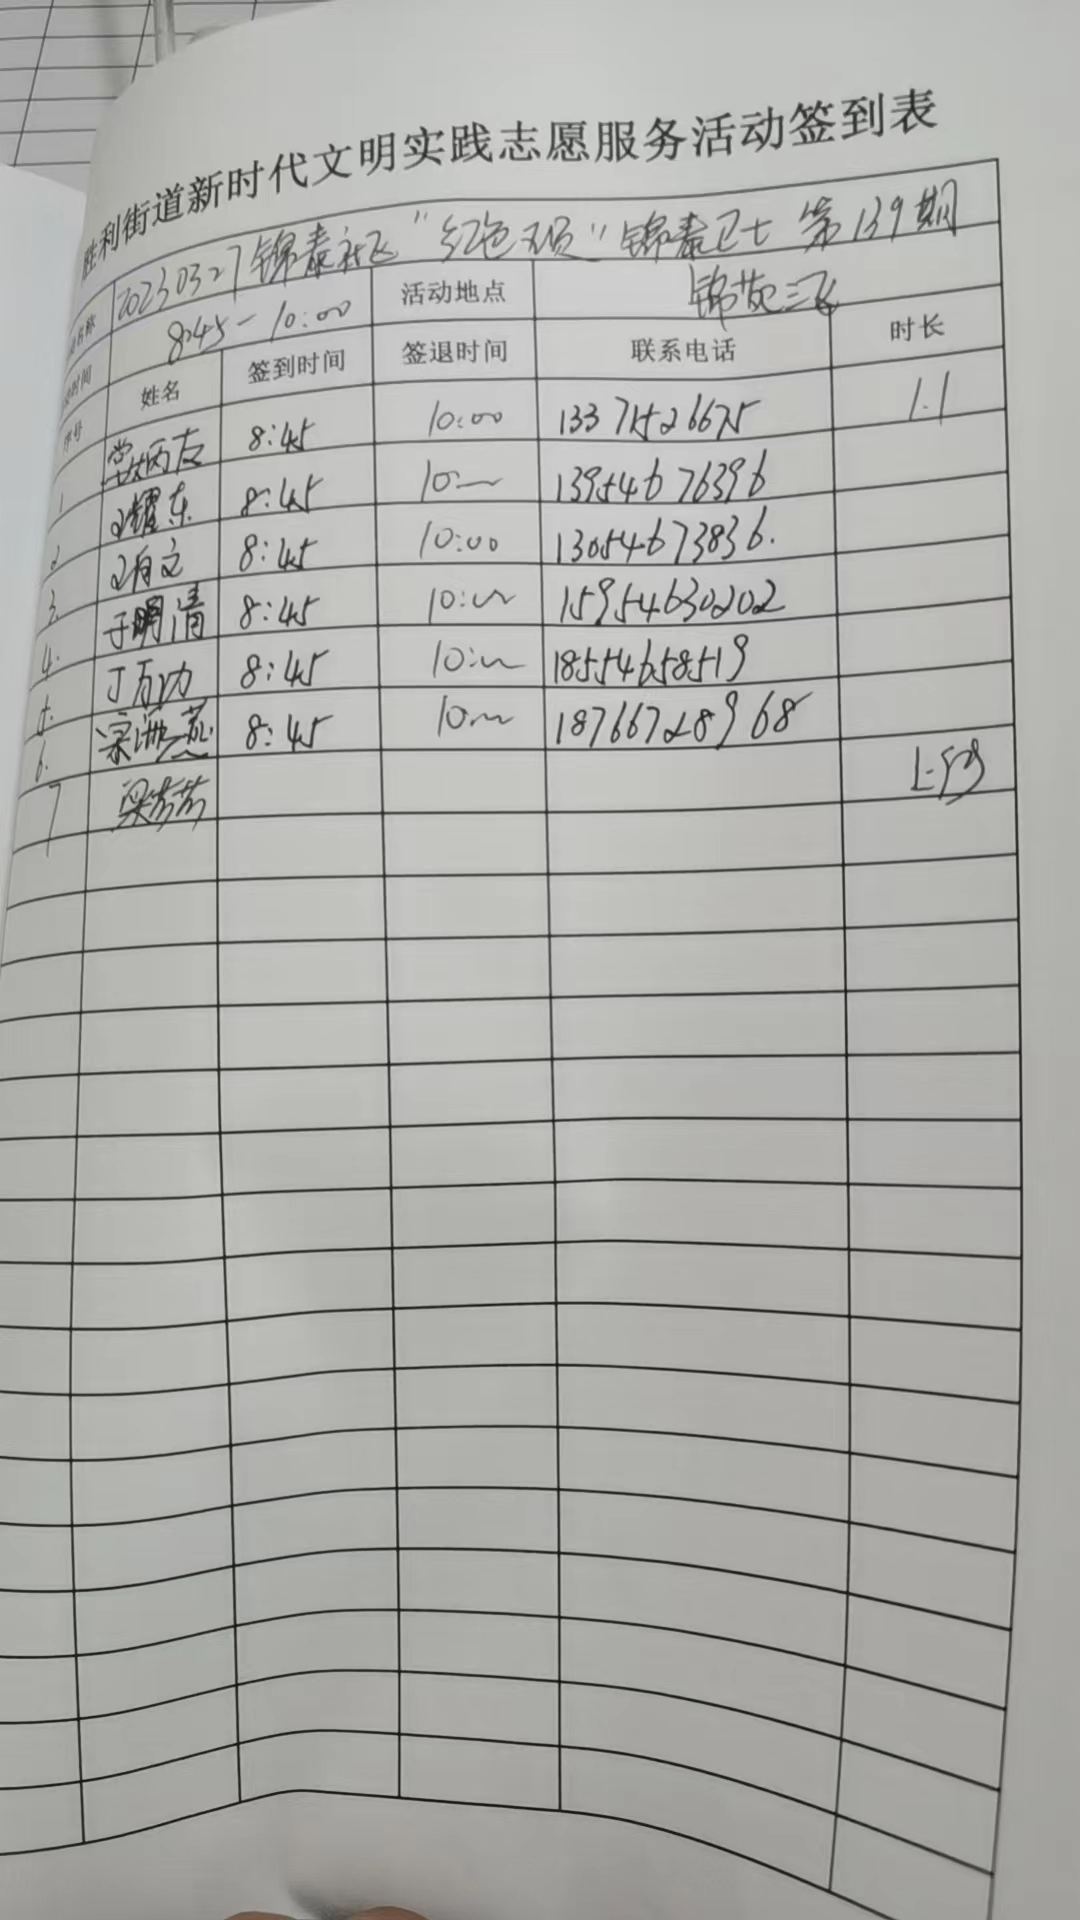 胜利街道新时代文明实践志愿服务活动签到表
名称 20230327锦泰社区“红色” 锦泰卫士 第139期
时间 8:45-10:00 活动地点 锦苑三区
序号 姓名 签到时间 签退时间 联系电话 时长
1 常炳友 8:45 10:00 13371526675 1.1
2 王耀东 8:45 10:~ 13954676396
3. 王有文 8:45 10:00 13054673836.
4. 于明清 8:45 10:~ 15954630202
5. 丁万功 8:45 10:~ 18554658519
6. 宋洲燕 8:45 10:~ 18766728968
7 梁芳芳